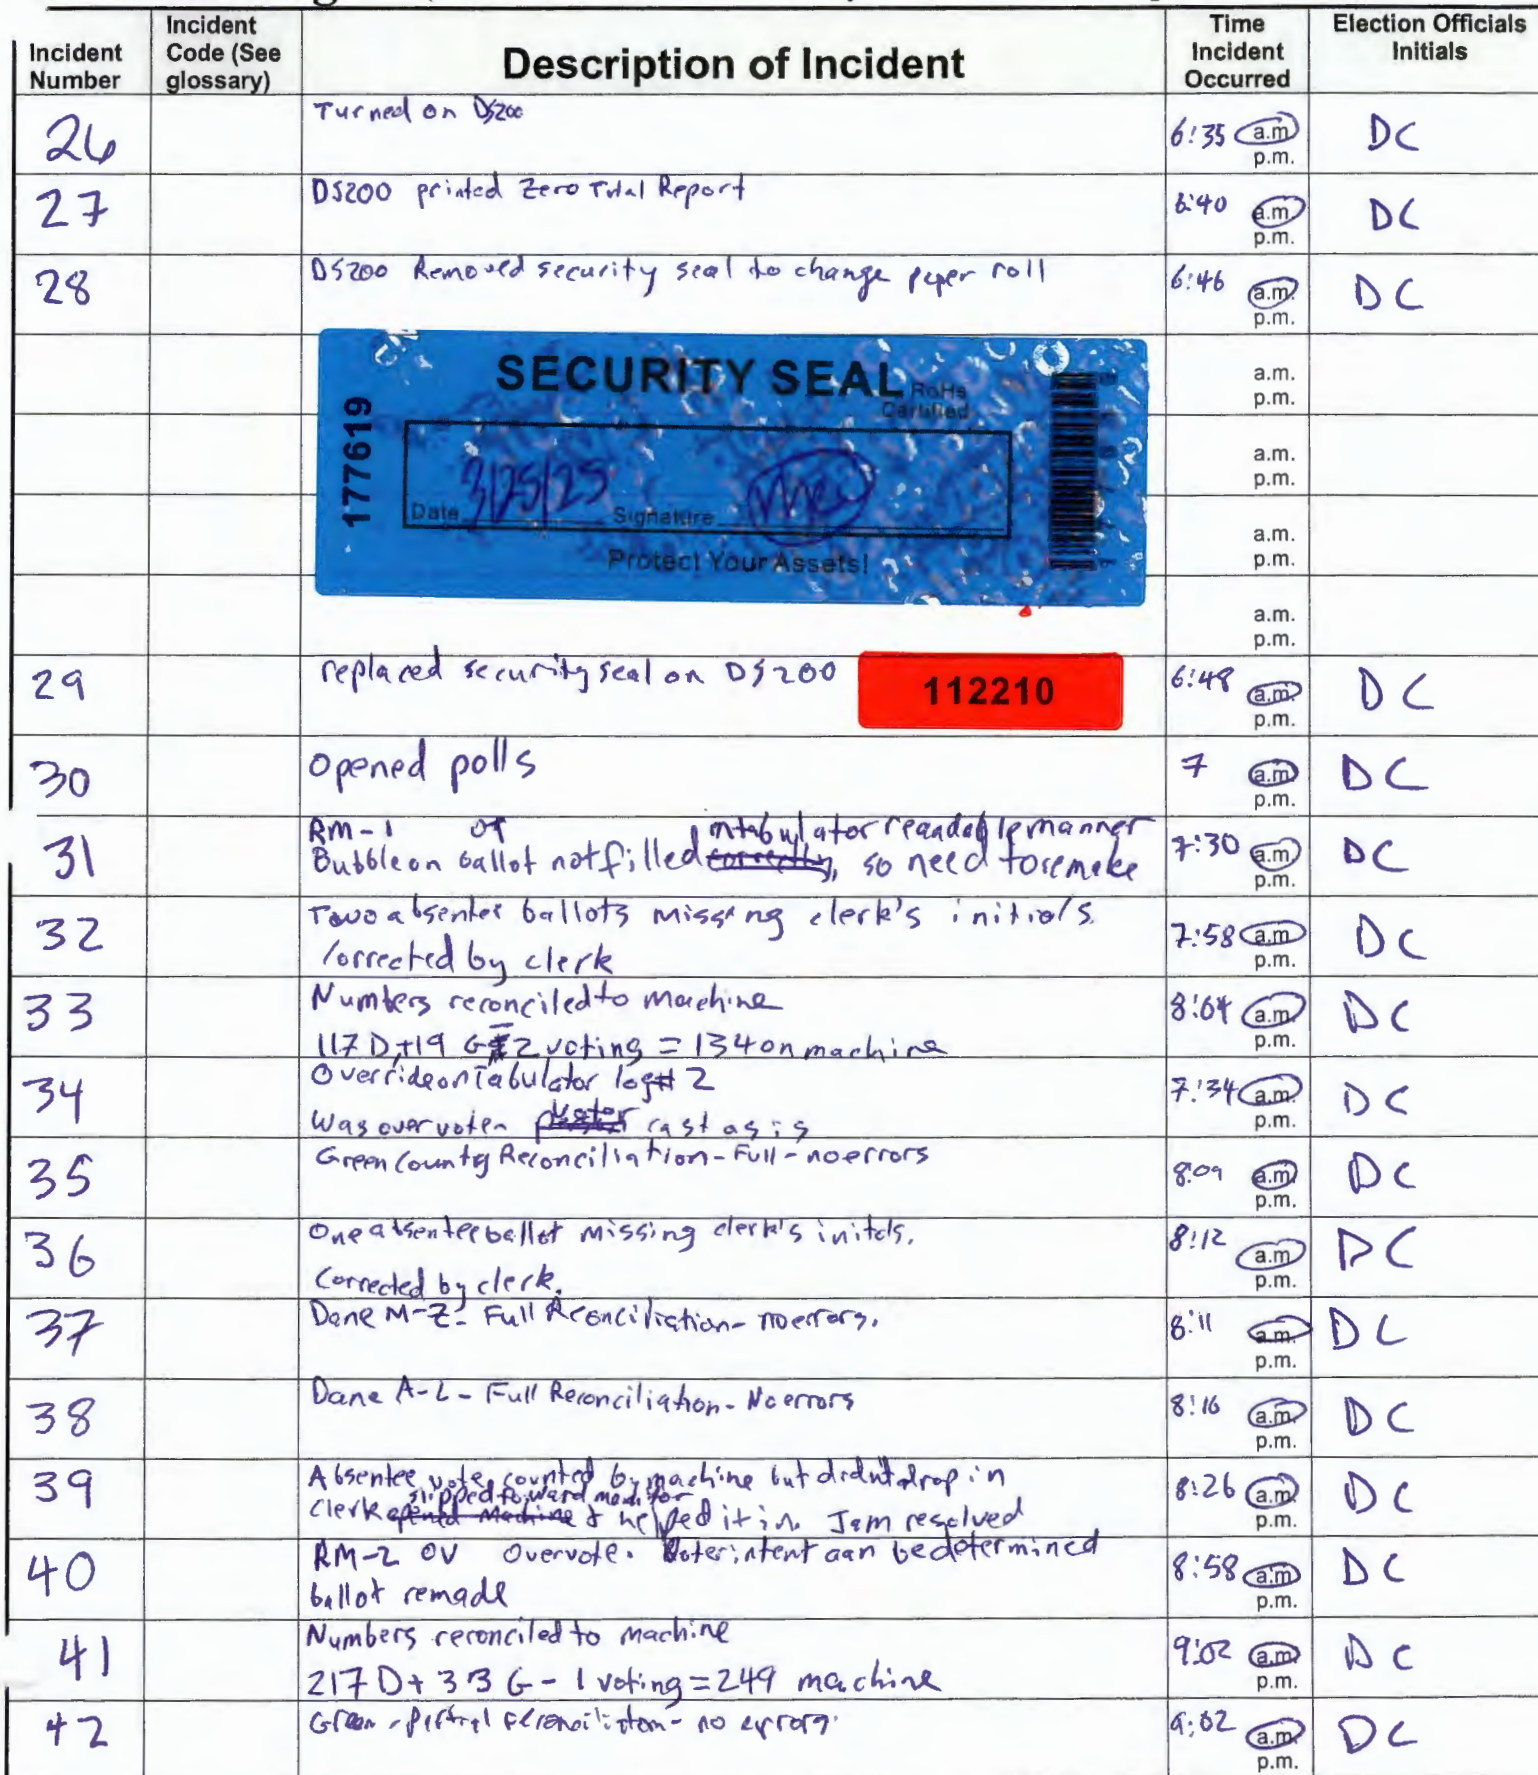 Incident Number
Incident Code (See glossary)
Description of Incident
Time Incident Occurred
Election Officials Initials
26 Turned on DS200 6:35 a.m p.m. DC
27 DS200 printed Zero Total Report 6:40 a.m p.m. DC
28 DS200 Removed security seal to change paper roll 6:46 a.m. p.m. DC
SECURITY SEAL RoHs
Certified
177619
3/25/25
Date Signature
Protect Your Assets!
a.m.
p.m.
a.m.
p.m.
a.m.
p.m.
a.m.
p.m.
29 replaced security seal on DS200 112210 6:48 a.m p.m. DC
30 Opened polls 7 a.m p.m. DC
31 RM-1 in tabulator readable manner
Bubble on ballot not filled correctly, so need to remake 7:30 a.m p.m. DC
32 Two absentee ballots missing clerk's initials.
Corrected by clerk 7:58 a.m p.m. DC
33 Numbers reconciled to machine
117 D + 19 G 2 voting = 134 on machine 8:04 a.m p.m. DC
34 Override on Tabulator log# 2
Was overvote voter cast as is 7:34 a.m p.m. DC
35 Green County Reconciliation - Full - no errors 8:09 a.m p.m. DC
36 One absentee ballot missing clerk's initals.
Corrected by clerk. 8:12 a.m p.m. DC
37 Dane M-Z - Full Reconciliation - no errors. 8:11 a.m. p.m. DC
38 Dane A-L - Full Reconciliation - No errors 8:16 a.m. p.m. DC
39 Absentee vote counted by machine but didn't drop in
slipped forward monitor
Clerk opened machine & helped it in. Jam resolved 8:26 a.m. p.m. DC
40 RM-2 OV Overvote. Voter intent can be determined
ballot remade 8:58 a.m p.m. DC
41 Numbers reconciled to machine
217 D + 33 G - 1 voting = 249 machine 9:02 a.m p.m. DC
42 Green - partial reconciliation - no errors 9:02 a.m p.m. DC